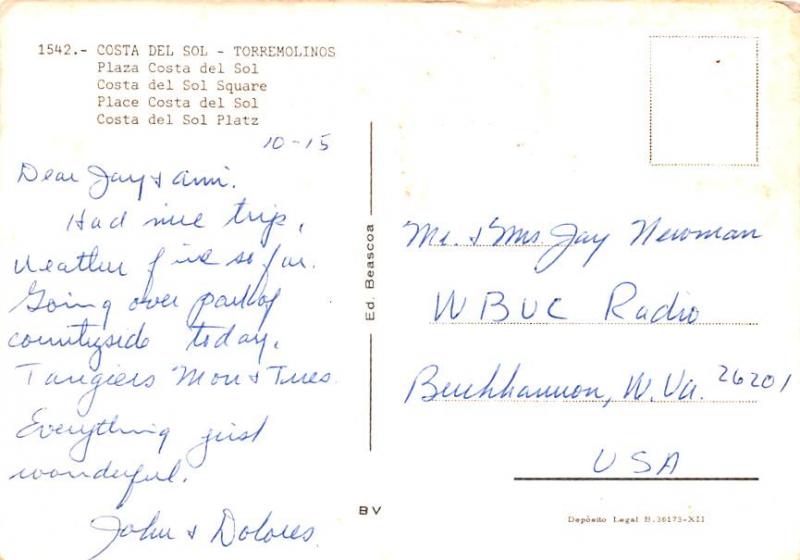 1542.- COSTA DEL SOL - TORREMOLINOS
Plaza Costa del Sol
Costa del Sol Square
Place Costa del Sol
Costa del Sol Platz
10-15
Dear Jay & Ami.
Had nice trip,
Weather fine so far.
Going over part of
countryside today,
Tangiers Mon & Tues.
Everything just
wonderful.
John & Dolores
Ed. Beascoa
BV
Mr. & Mrs. Jay Newman
WBUC Radio
Buckhannon, W. Va. 26201
USA
Depósito Legal B.36173-XII